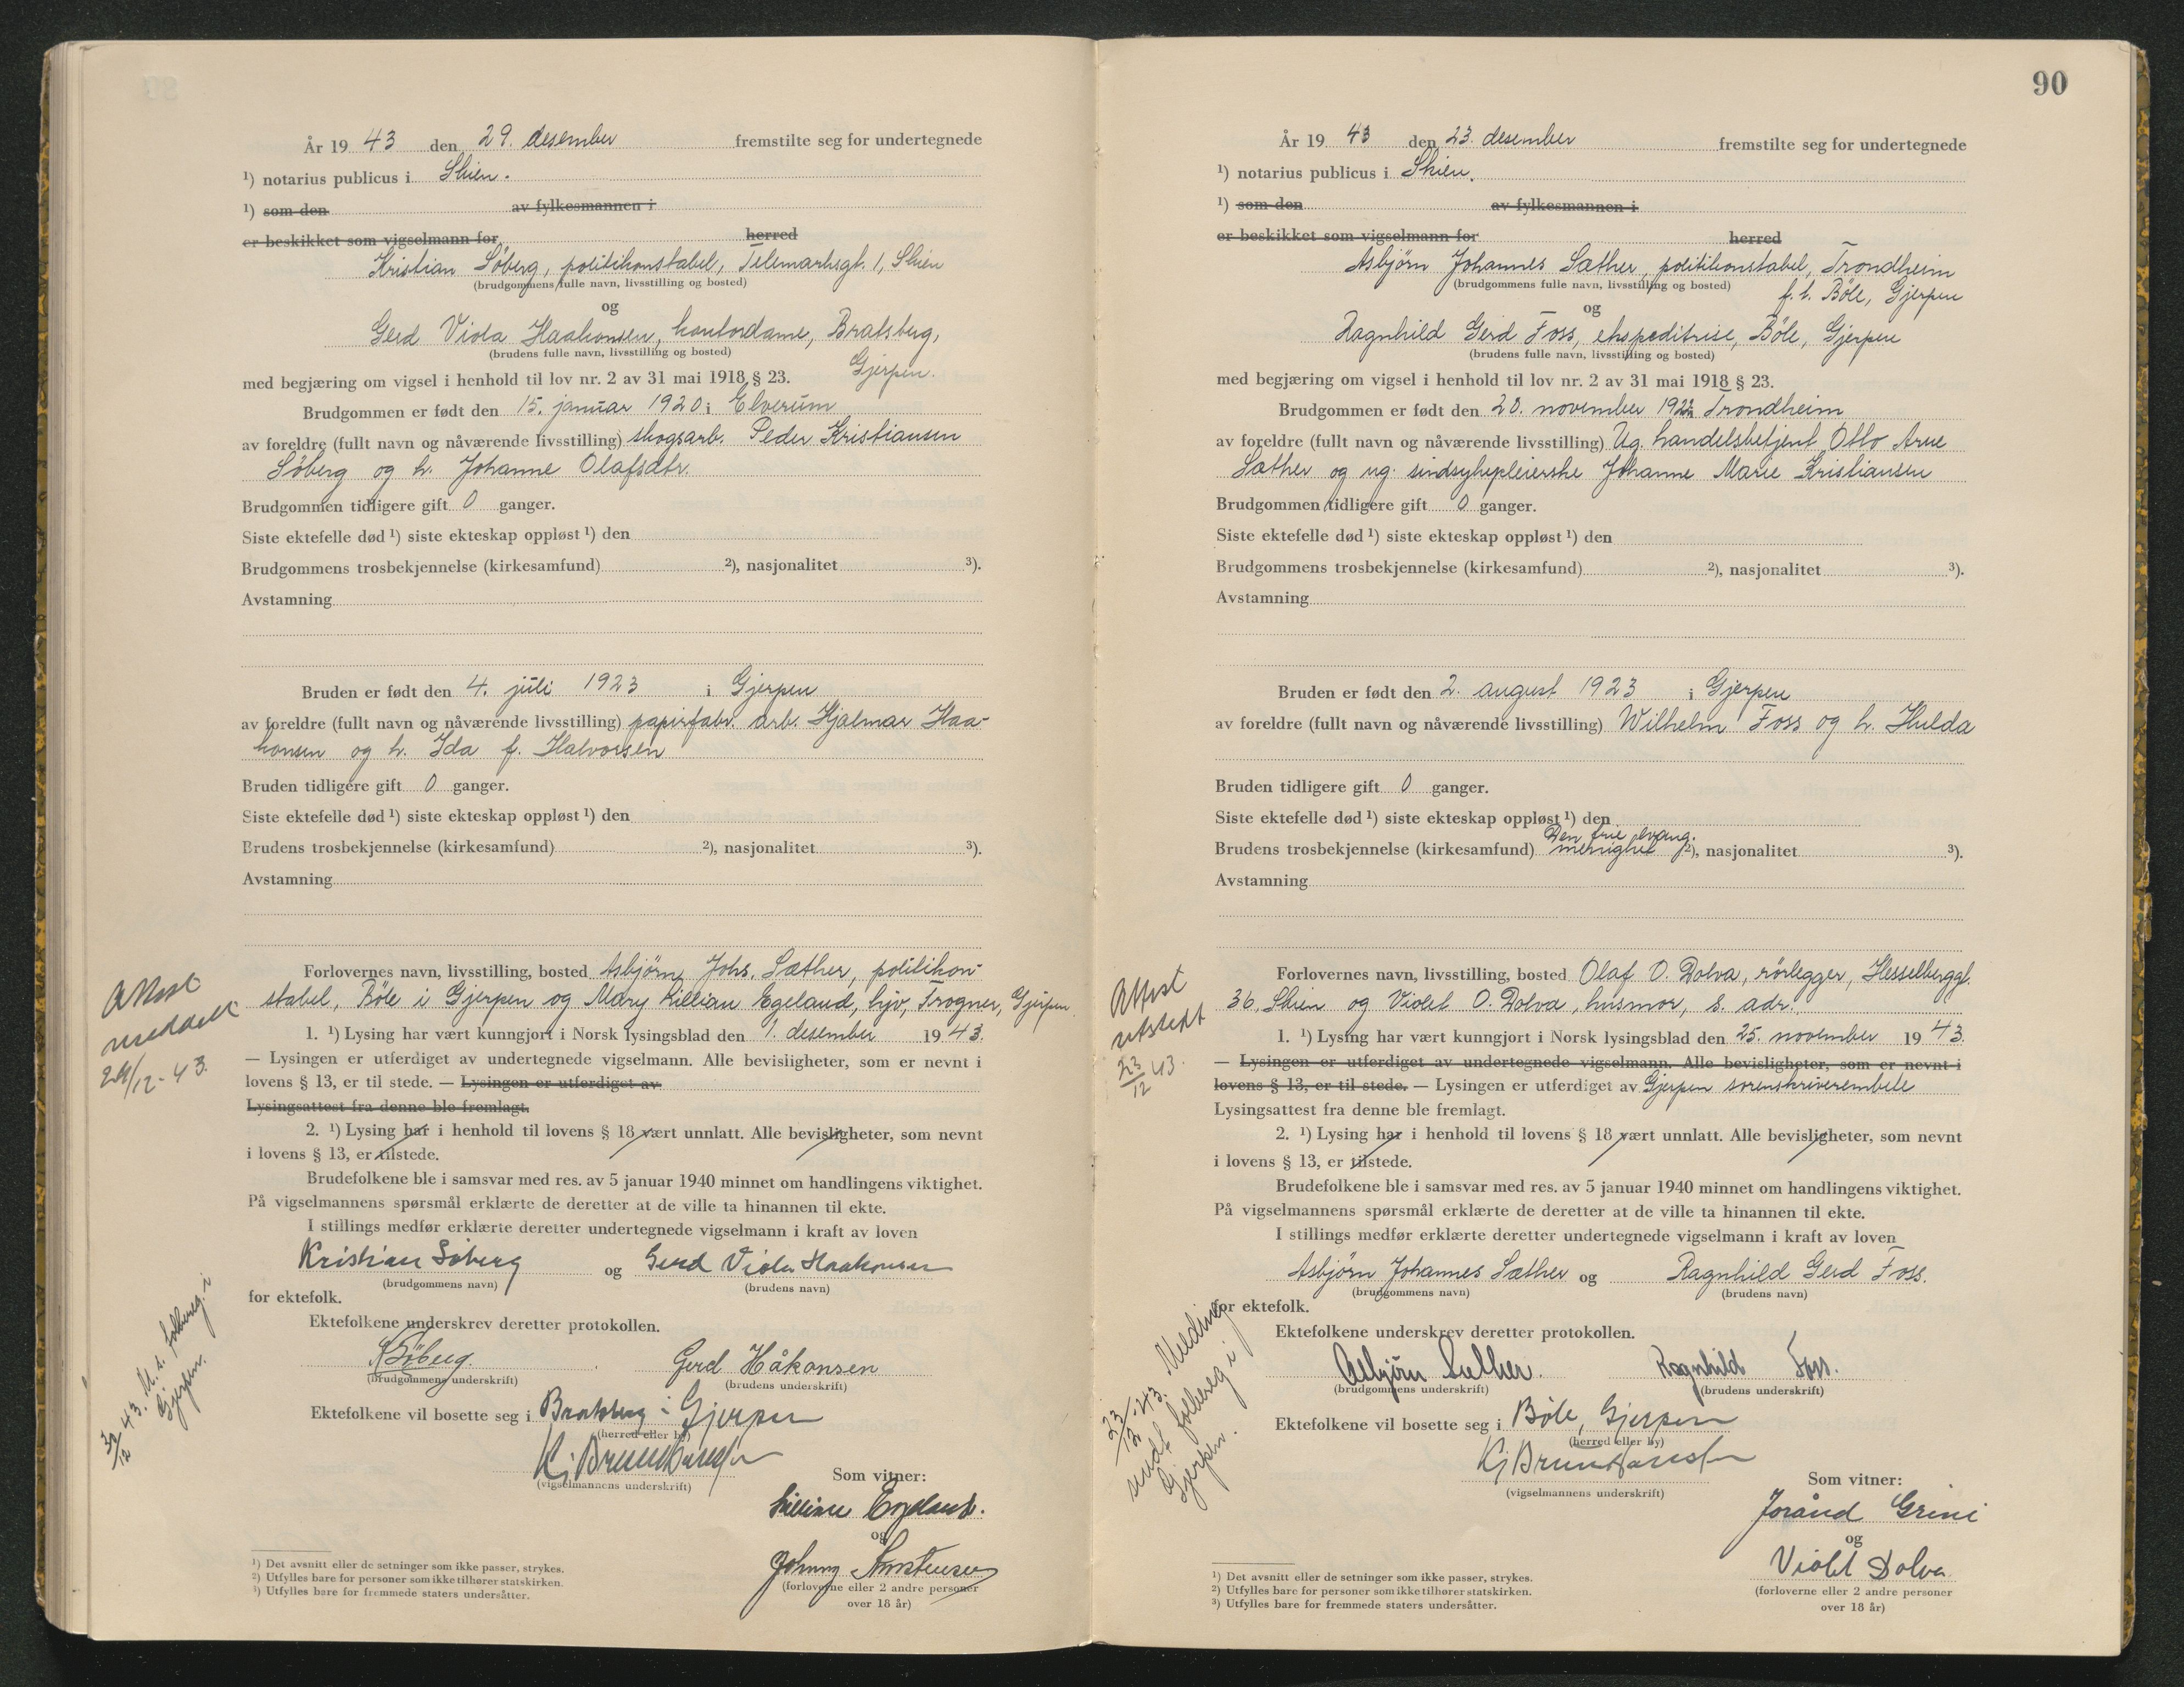 År 19 43 den 29. desember fremstilte seg for undertegnede
¹) notarius publicus i Skien.
¹) som den av fylkesmannen i
er beskikket som vigselmann for herred
Kristian Söberg, politikonstabel, Telemarksgt. 1, Skien
(brudgommens fulle navn, livsstilling og bosted)
og
Gerd Viola Haakonsen, kontordame, Bratsberg,
(brudens fulle navn, livsstilling og bosted)
Gjerpen.
med begjæring om vigsel i henhold til lov nr. 2 av 31 mai 1918 § 23.
Brudgommen er født den 15. januar 1920 i Elverum
av foreldre (fullt navn og nåværende livsstilling) skogsarb. Peder Kristiansen
Söberg og h. Johanne Olafsdtr.
Brudgommen tidligere gift 0 ganger.
Siste ektefelle død ¹) siste ekteskap oppløst ¹) den
Brudgommens trosbekjennelse (kirkesamfund) ²), nasjonalitet ³).
Avstamning
Bruden er født den 4. juli 1923 i Gjerpen
av foreldre (fullt navn og nåværende livsstilling) papirfabr. arb. Hjalmar Haa-
konsen og h. Ida f. Halvorsen
Bruden tidligere gift 0 ganger.
Siste ektefelle død ¹) siste ekteskap oppløst ¹) den
Brudens trosbekjennelse (kirkesamfund) ²), nasjonalitet ³).
Avstamning
Forlovernes navn, livsstilling, bosted Asbjörn Johs. Sæther, politikon-
stabel, Böle i Gjerpen og Mary Lillian Egeland, hjv, Frogner, Gjerpen.
Attest
meddelt
29/12-43.
1. ¹) Lysing har vært kunngjort i Norsk lysingsblad den 1. desember 1943.
— Lysingen er utferdiget av undertegnede vigselmann. Alle bevisligheter, som er nevnt i
lovens § 13, er til stede. — Lysingen er utferdiget av
Lysingsattest fra denne ble fremlagt.
2. ¹) Lysing har i henhold til lovens § 18 vært unnlatt. Alle bevisligheter, som nevnt
i lovens § 13, er tilstede.
Brudefolkene ble i samsvar med res. av 5 januar 1940 minnet om handlingens viktighet.
På vigselmannens spørsmål erklærte de deretter at de ville ta hinannen til ekte.
I stillings medfør erklærte deretter undertegnede vigselmann i kraft av loven
Kristian Söberg og Gerd Viola Haakonsen
(brudgommens navn) (brudens navn)
for ektefolk.
Ektefolkene underskrev deretter protokollen.
K Söberg. Gerd Håkonsen
(brudgommens underskrift) (brudens underskrift)
Ektefolkene vil bosette seg i Bratsberg i Gjerpen
(herred eller by)
(vigselmannens underskrift)
Som vitner:
Lillian Egeland.
og
Johnny
(forloverne eller 2 andre personer
over 18 år)
12 43. M. s. folkereg. i
Gjerpen.
¹) Det avsnitt eller de setninger som ikke passer, strykes.
²) Utfylles bare for personer som ikke tilhører statskirken.
³) Utfylles bare for fremmede staters undersåtter.
90
År 19 43 den 23. desember fremstilte seg for undertegnede
¹) notarius publicus i Skien.
¹) som den av fylkesmannen i
er beskikket som vigselmann for herred
Asbjörn Johannes Sæther, politikonstabel, Trondheim
(brudgommens fulle navn, livsstilling og bosted)
f. t. Böle, Gjerpen
og
Ragnhild Gerd Foss, ekspeditrise, Böle, Gjerpen
(brudens fulle navn, livsstilling og bosted)
med begjæring om vigsel i henhold til lov nr. 2 av 31 mai 1918 § 23.
Brudgommen er født den 20. november 1922 i Trondheim
av foreldre (fullt navn og nåværende livsstilling) Ug. handelsbetjent Otto Arne
Sæther og ug. sindsykepleierske Johanne Marie Kristiansen
Brudgommen tidligere gift 0 ganger.
Siste ektefelle død ¹) siste ekteskap oppløst ¹) den
Brudgommens trosbekjennelse (kirkesamfund) ²), nasjonalitet ³).
Avstamning
Bruden er født den 2. august 1923 i Gjerpen
av foreldre (fullt navn og nåværende livsstilling) Wilhelm Foss og h. Hulda
Bruden tidligere gift 0 ganger.
Siste ektefelle død ¹) siste ekteskap oppløst ¹) den
Den frie evang.
Brudens trosbekjennelse (kirkesamfund) menighet ²), nasjonalitet ³).
Avstamning
Forlovernes navn, livsstilling, bosted Olaf O. Dolva, rörlegger, Hesselberggt.
36, Skien og Violet O. Dolva, husmor, s. adr.
Attest
utstedt
23/12 43.
1. ¹) Lysing har vært kunngjort i Norsk lysingsblad den 25. november 1943.
— Lysingen er utferdiget av undertegnede vigselmann. Alle bevisligheter, som er nevnt i
lovens § 13, er til stede. — Lysingen er utferdiget av Gjerpen sorenskriverembete
Lysingsattest fra denne ble fremlagt.
2. ¹) Lysing har i henhold til lovens § 18 vært unnlatt. Alle bevisligheter, som nevnt
i lovens § 13, er tilstede.
Brudefolkene ble i samsvar med res. av 5 januar 1940 minnet om handlingens viktighet.
På vigselmannens spørsmål erklærte de deretter at de ville ta hinannen til ekte.
I stillings medfør erklærte deretter undertegnede vigselmann i kraft av loven
Asbjörn Johannes Sæther og Ragnhild Gerd Foss.
(brudgommens navn) (brudens navn)
for ektefolk.
Ektefolkene underskrev deretter protokollen.
Asbjørn Sæther. Ragnhild Foss.
(brudgommens underskrift) (brudens underskrift)
Ektefolkene vil bosette seg i Böle, Gjerpen
(herred eller by)
(vigselmannens underskrift)
Som vitner:
Jorånd Grini
og
Violet Dolva
(forloverne eller 2 andre personer
over 18 år)
23/12-43. Melding
sendt folkereg i
Gjerpen.
¹) Det avsnitt eller de setninger som ikke passer, strykes.
²) Utfylles bare for personer som ikke tilhører statskirken.
³) Utfylles bare for fremmede staters undersåtter.